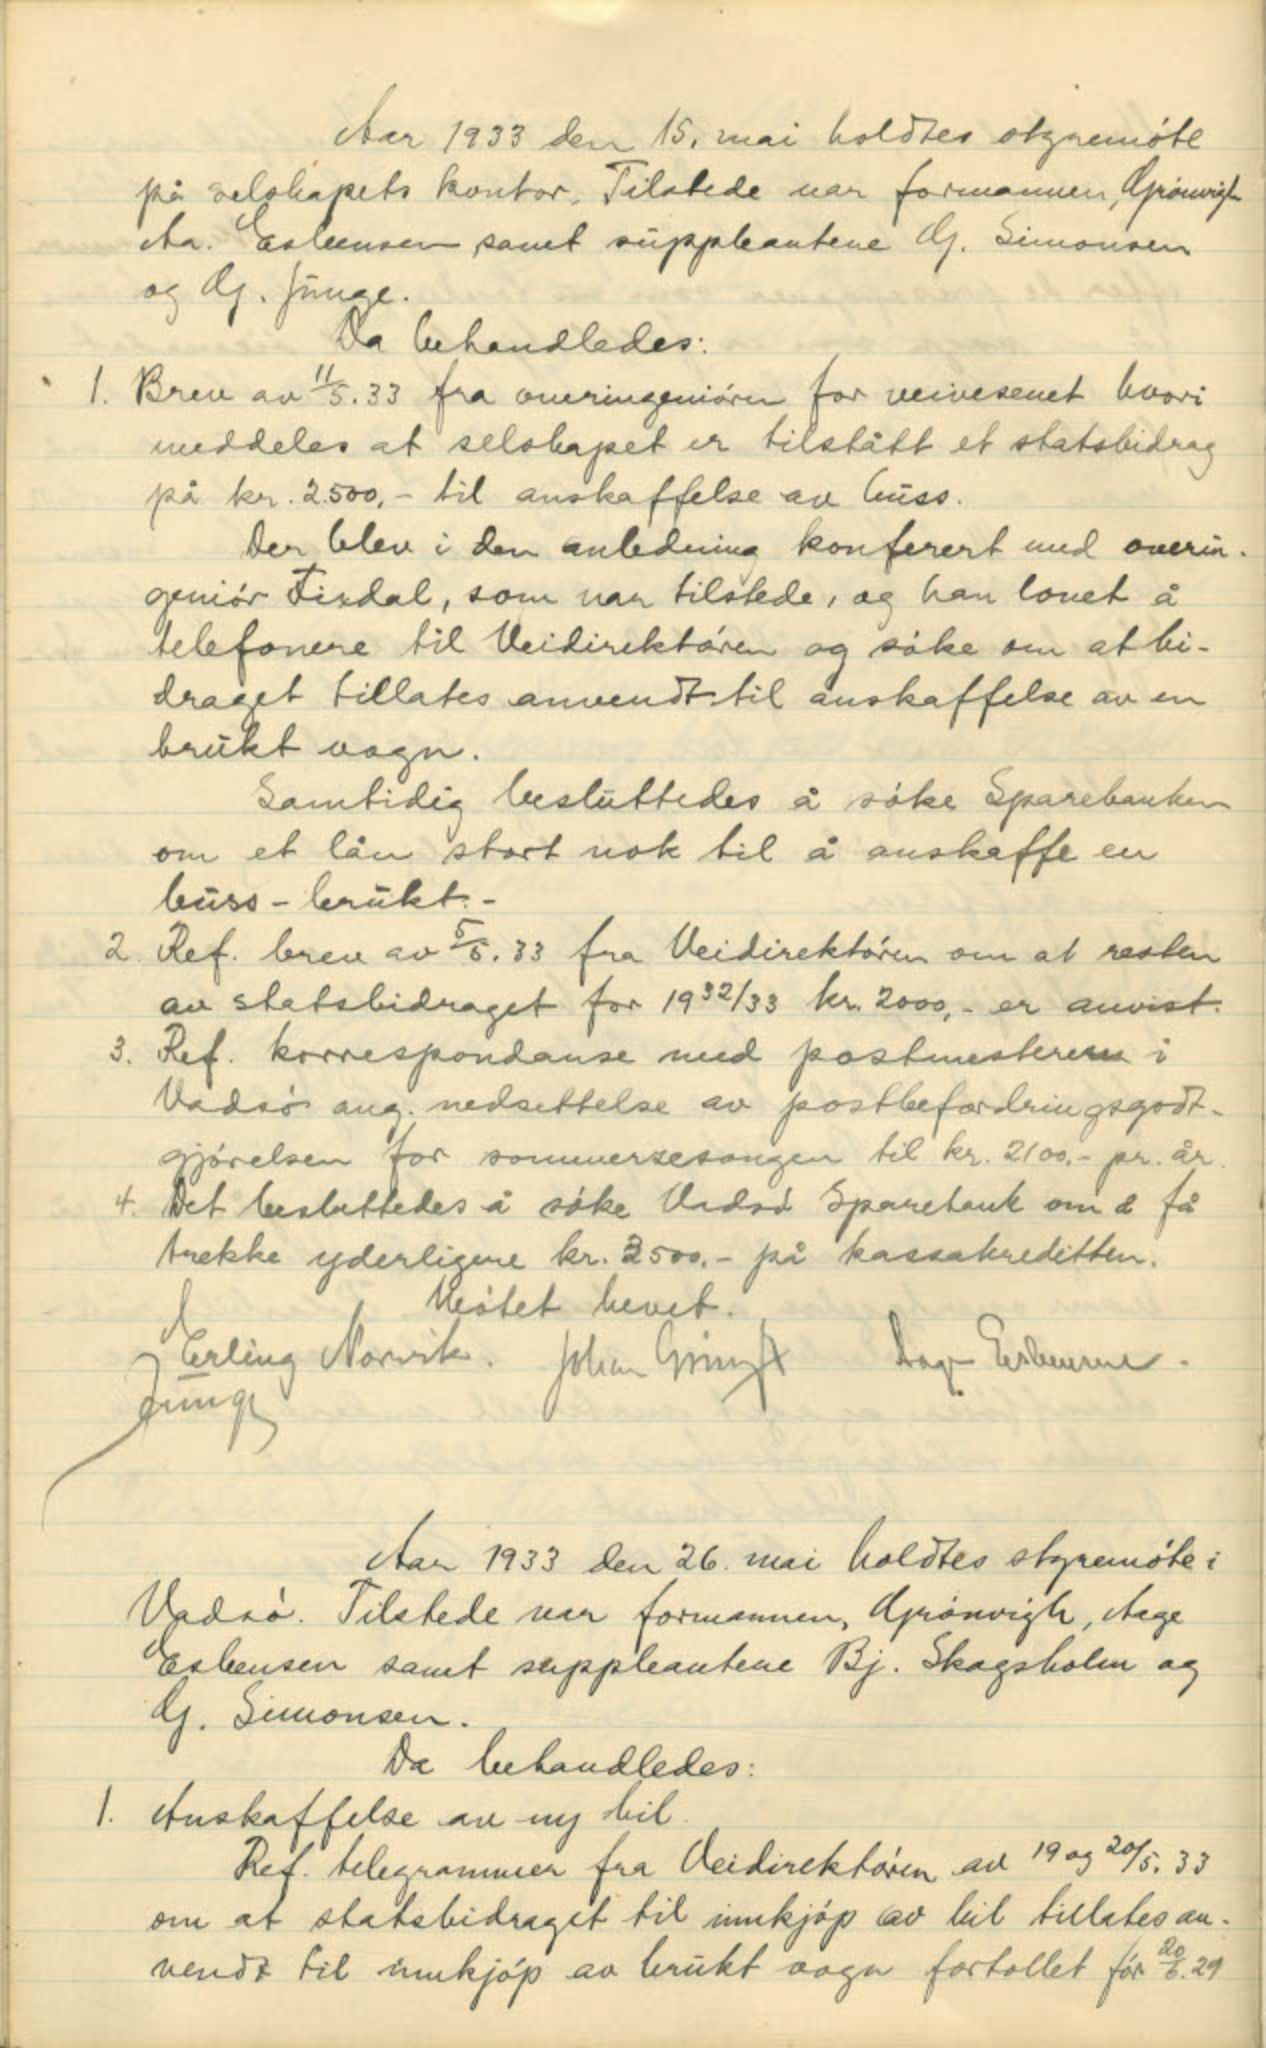 Aar 1933 den 15. mai holdtes styremöte
på selskapets kontor. Tilstede var formannen, Grönvigh
Aa. Esbensen samt suppleantene G. Simonsen
og G. Junge.
Da behandledes:
1. Brev av 11/5.33 fra overingeniören for veivesenet hvori
meddeles at selskapet er tilstått et statsbidrag
på kr. 2.500,- til anskaffelse av buss.
Der blev i den anledning konferert med overin-
geniör Fixdal, som var tilstede, og han lovet å
telefonere til Veidirektören og söke om at bi-
draget tillates anvendt til anskaffelse av en
brukt vogn.
Samtidig besluttedes å söke Sparebanken
om et lån stort nok til å anskaffe en
buss - brukt.-
2. Ref. brev av 5/5.33 fra Veidirektören om at resten
av statsbidraget for 1932/33 kr. 2000,- er anvist.
3. Ref. korrespondanse med postmesteren i
Vadsö ang. nedsettelse av postbefordringsgodt-
gjörelsen for sommersesongen til kr. 2100.- pr. år.
4. Det besluttedes å söke Vadsö Sparebank om å få
trekke yderligere kr. 2500.- på kassakreditten.
Mötet hevet.
Erling Norvik. Johan Grönvigh Aage Esbensen.
Junge
Aar 1933 den 26. mai holdtes styremöte i
Vadsö. Tilstede var formannen, Grönvigh, Aage
Esbensen samt suppleantene Bj. Skogsholm og
G. Simonsen.
Da behandledes:
1. Anskaffelse av ny bil.
Ref. telegrammer fra Veidirektören av 19 og 20/5.33
om at statsbidraget til innkjöp av bil tillates an-
vendt til innkjöp av brukt vogn fortollet för 20/6.29